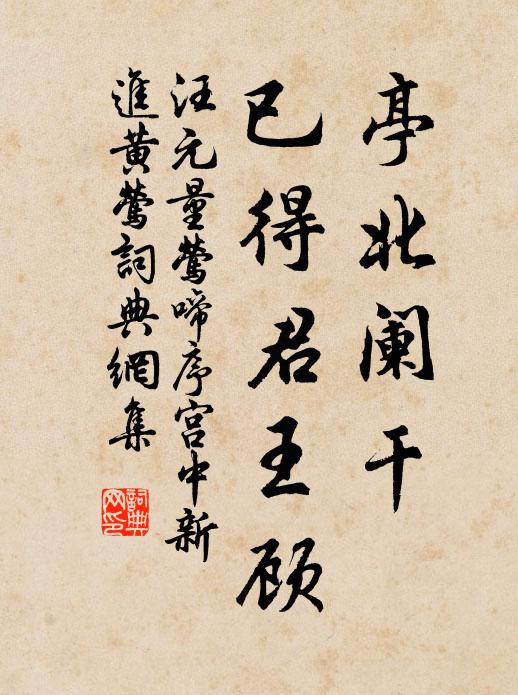 亭北阑干
已得君王顾
汪元量莺啼序宫中新
進黄莺詞典網集
詞典网印